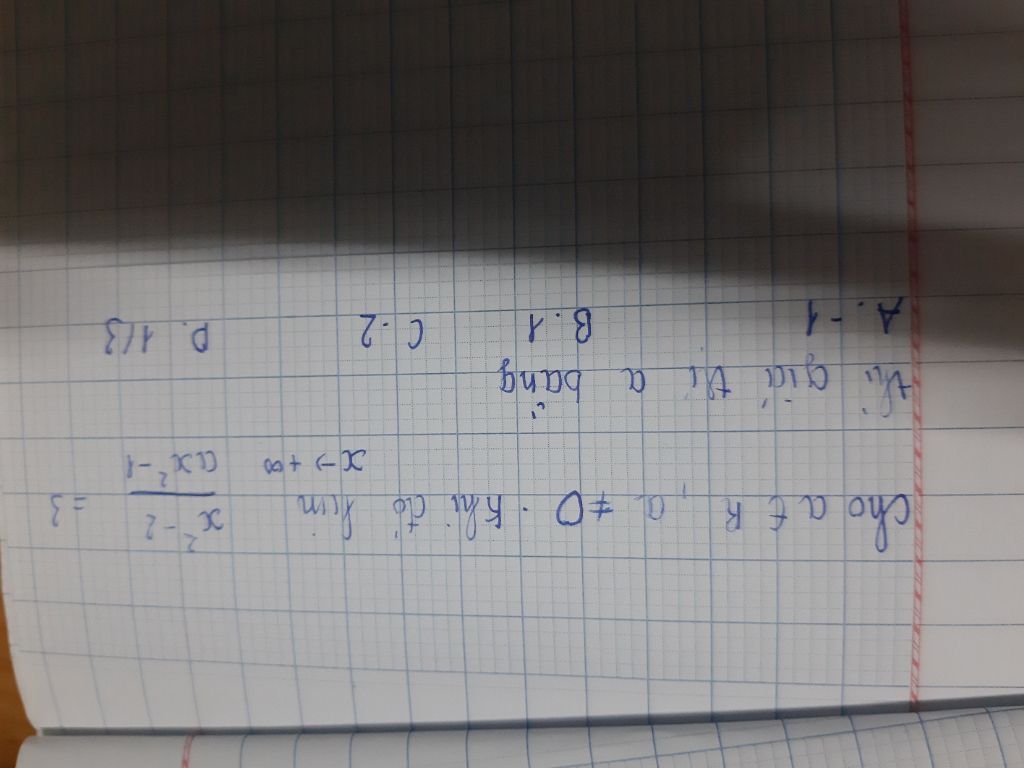 Cho a ∈ R, a ≠ 0. Khi đó lim x→+∞ (x² - 2)/(ax² - 1) = 3
thì giá thị a bằng
A. -1 B. 1 C. 2 D. 1/3